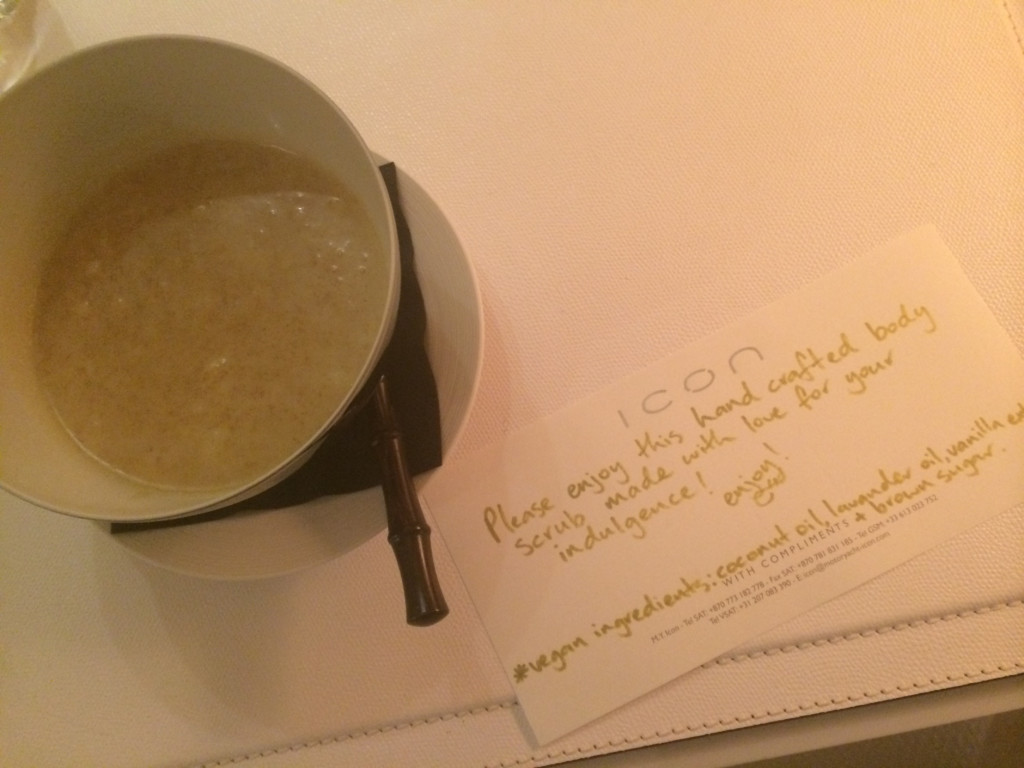 ICON
Please enjoy this hand crafted body
scrub, made with love for your
indulgence! enjoy!
*vegan ingredients: coconut oil, lavander oil, vanilla ext
+ brown sugar.
WITH COMPLIMENTS
M.Y. Icon - Tel SAT: +870 773 182 778 - Fax SAT: +870 783 831 185 - Tel COM: +33 613 023 752
Tel VSAT: +31 207 083 390 - E: icon@motoryacht-icon.com